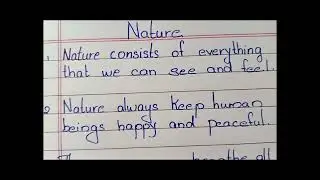 Nature
1. Nature consists of everything
that we can see and feel.
2. Nature always keep human
beings happy and peaceful.